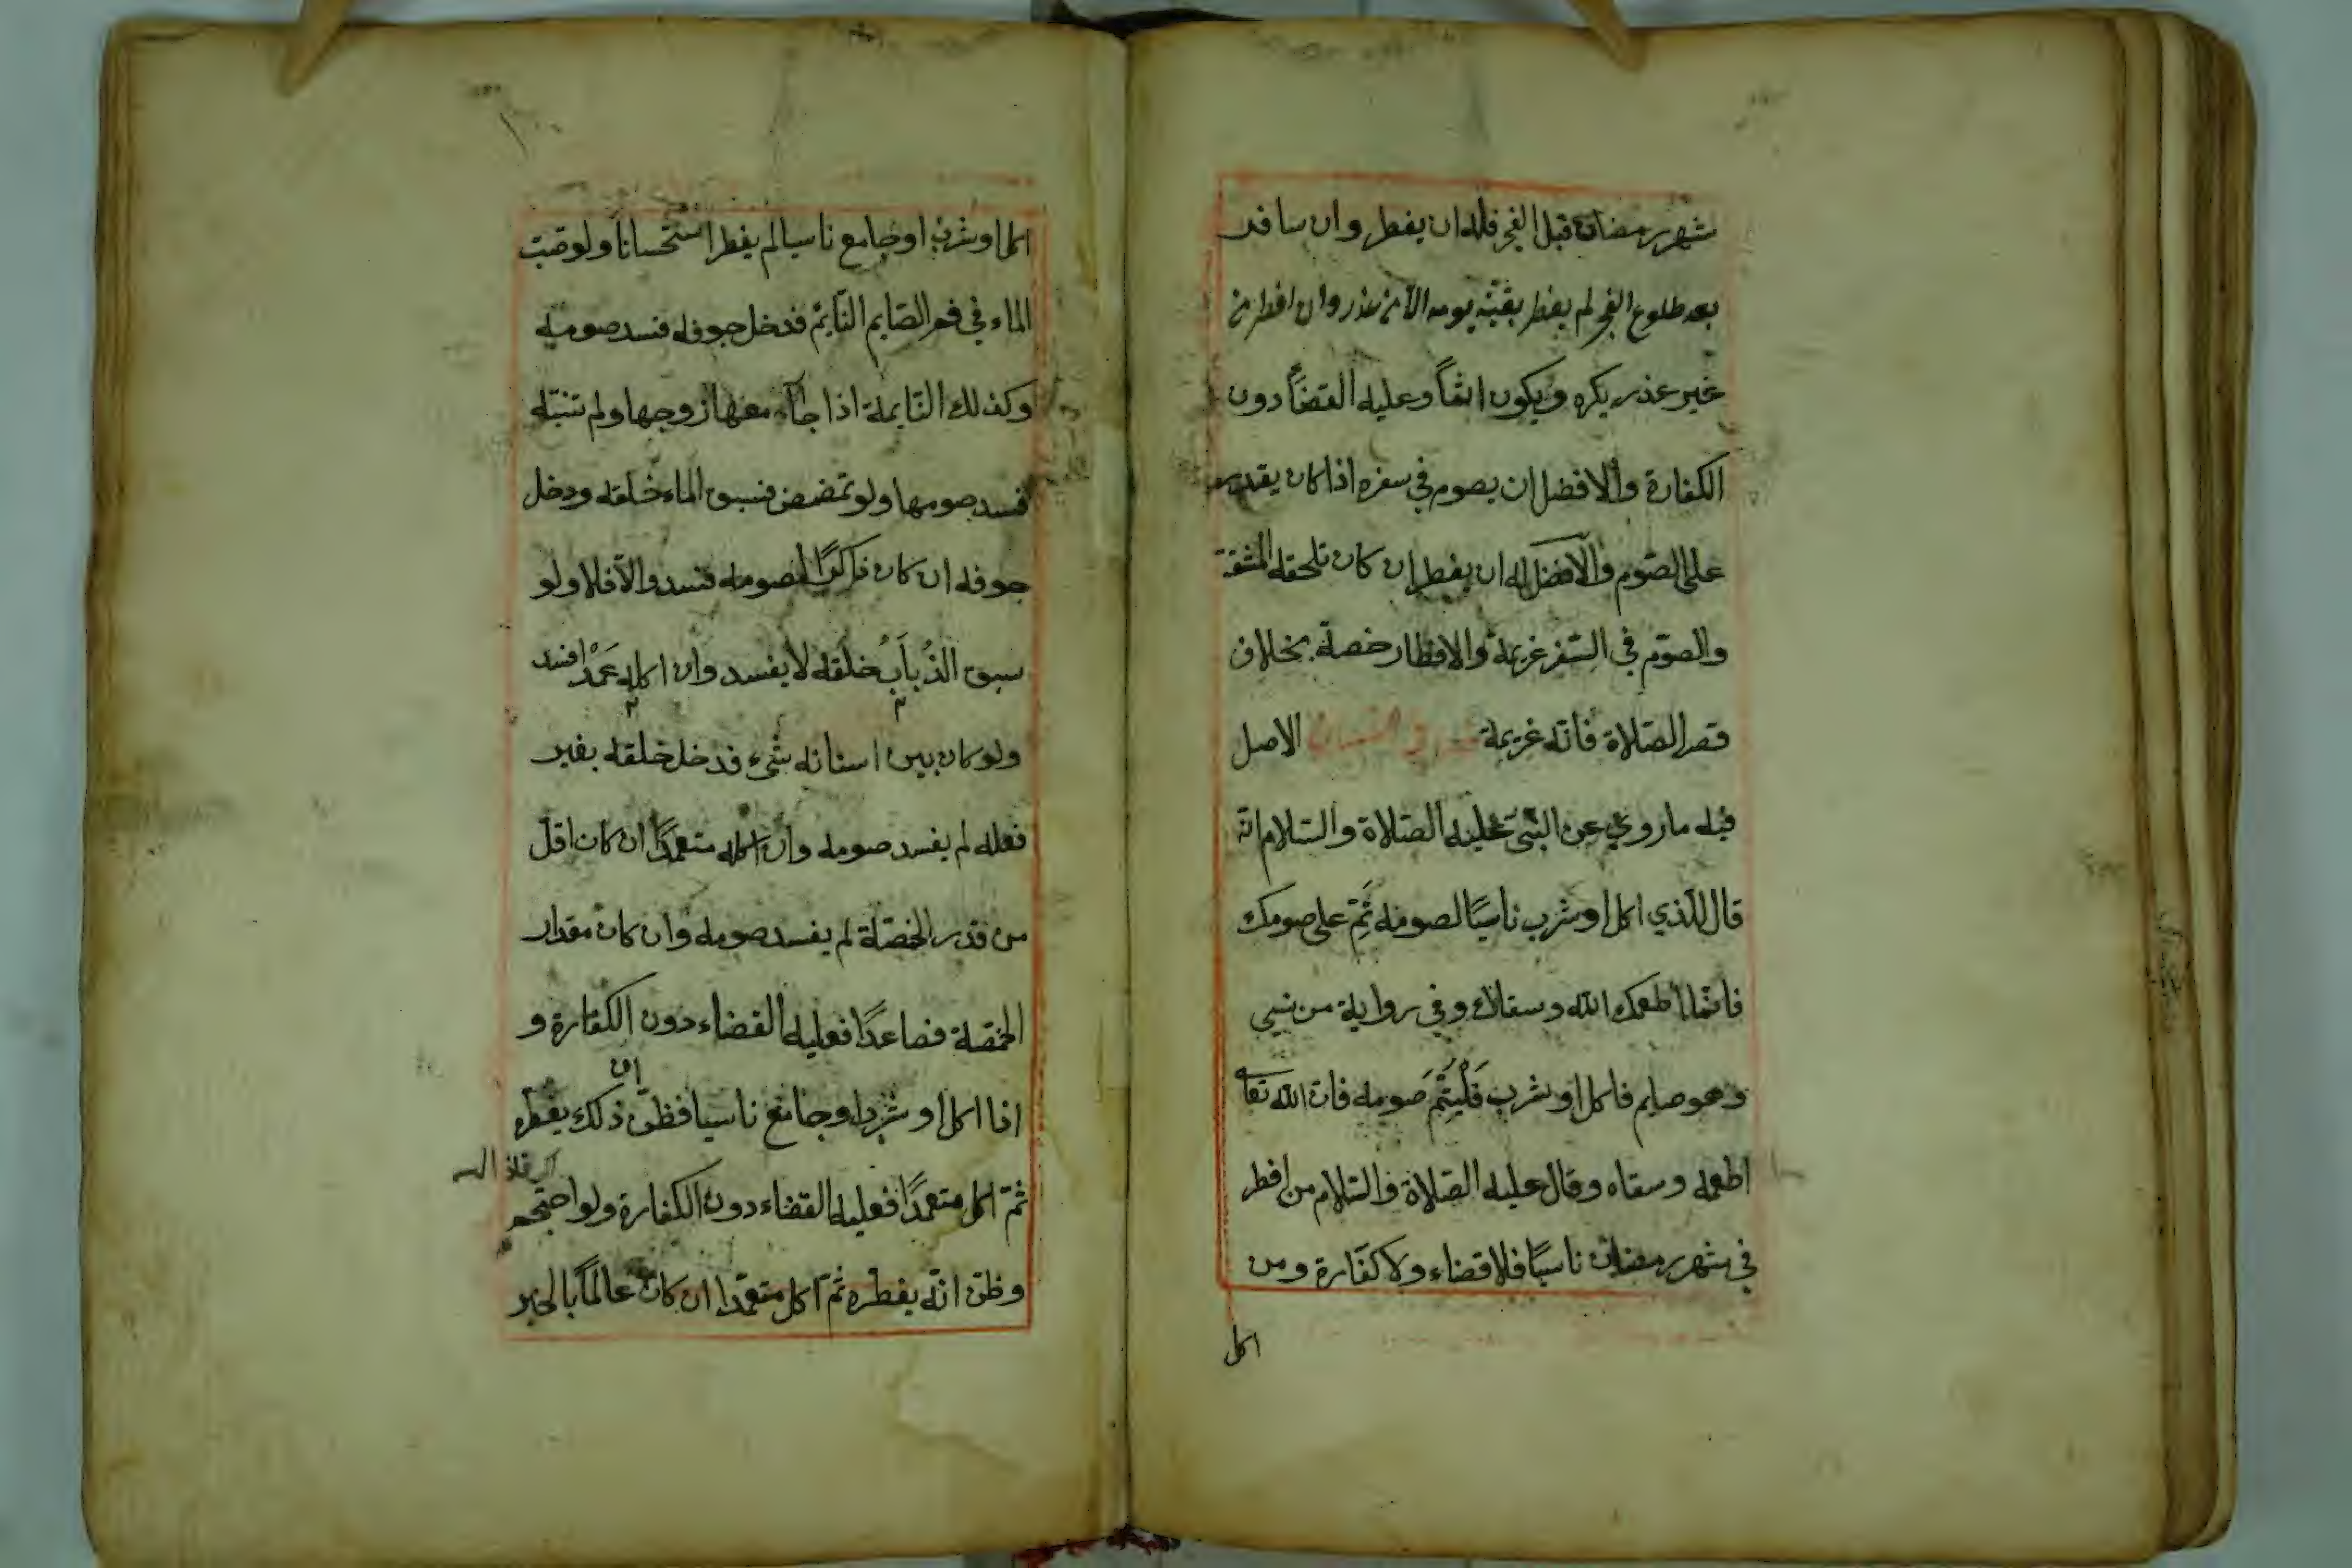 شهر رمضان قبل الفجر فله ان يفطر وان سافر
بعد طلوع الفجر لم يفطر بقيّة يومه الا من عذر وان افطر من
غير عذر يكره ويكون اثمًا وعليه القضآء دون
الكفارة والافضل ان يصوم في سفره اذا كان يقدر
على الصّوم والافضل له ان يفطر ان كان تلحقه المشقة
والصّوم في السّفر عزيمة والافطار رخصة بخلاف
قصر الصّلاة فانّه عزيمة في النسيان الاصل
فيه ما روي عن النبّي عليه الصّلاة والسّلام انّه
قال للّذي اكل او شرب ناسيًا لصومه تِمّ على صومك
فانّما اطعمك الله وسقاك وفي رواية من نسي
وهو صايم فاكل او شرب فَلْيُتِمَّ صومه فان الله تعا
اطعمه وسقاه وقال عليه الصّلاة والسّلام من افطر
في شهر رمضان ناسيًا فلا قضاء ولا كفّارة ومن
اكل
اكل او شرب او جامع ناسيا لم يفطر استحسانًا ولو صبّ
الماء في فم الصّايم النّايم فدخل جوفه فسد صومه
وكذلك النّايمة اذا جامعها زوجها ولم تنتبه
فسد صومها ولو تمضمض فسبق الماء حلقه ودخل
جوفه ان كان ذاكرًا لصومه فسد والاّ فلا ولو
سبق الذُّبابُ حلقه لا يفسد وان اكله عَمْدًا فسد
ولو كان بين اسنانه شيء فدخل حلقه بغير
فعله لم يفسد صومه وان اكله متعمّدًا ان كان اقلّ
من قدر الحمّصة لم يفسد صومه وان كان مقدار
الحمّصة فصاعدًا فعليه القضاء دون الكفّارة و
اذا اكل او شرب او جامع ناسيا فظنّ ان ذلك يفطره
ثمّ اكل متعمّدًا فعليه القضاء دون الكفارة ولو احتجم
وظنّ انّه يفطره ثمّ اكل متعمّدا ان كان عالمًا بالخبر